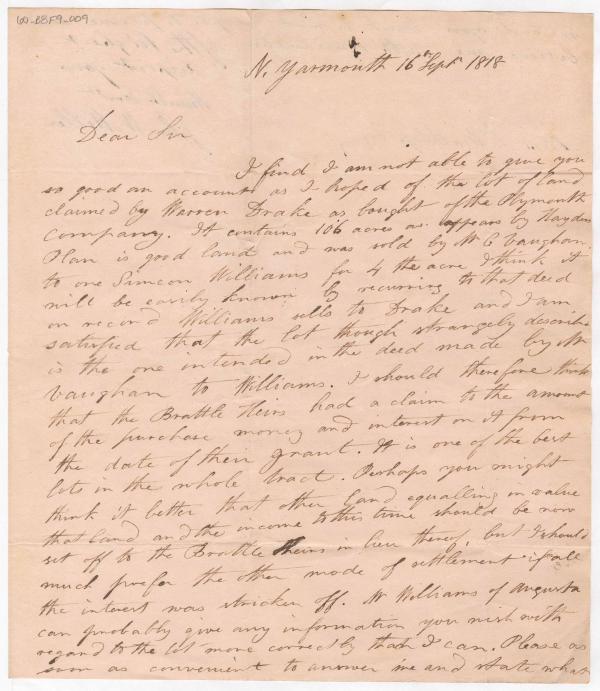 60-B8F9-009
N. Yarmouth 16th Sept. 1818
Dear Sir
I find I am not able to give you
so good an account as I hoped of the lot of land
claimed by Warren Drake as bought of the Plymouth
Company. It contains 106 acres as appears by Haydens
Plan is good land and was sold by Mr C Vaughan
to one Simeon Williams for 4 the acre I think it
will be easily known by recurring to that deed
on record Williams sells to Drake and I am
satisfied that the lot though strangely describd
is the one intended in the deed made by Mr
Vaughan to Williams. I should therefore think
that the Brattle Heirs had a claim to the amount
of the purchase money and interest on it from
the date of their grant. It is one of the best
lots in the whole tract. Perhaps you might
think it better that other land equalling in value
that land and the income to this time should be now
set off to the Brattle Heirs in lieu thereof, but I should
much prefer the other mode of settlement if all
the interest was stricken off. Mr Williams of Augusta
can probably give any information you wish with
regard to the lot more correctly than I can. Please as
soon as convenient to answer me and state what